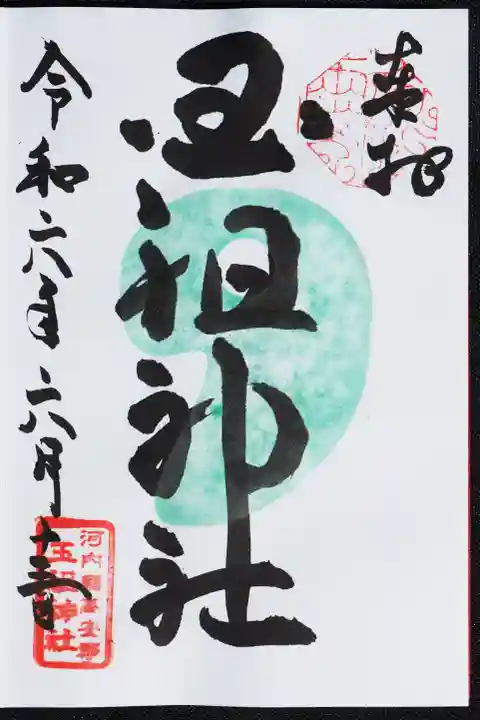 奉拝
玉祖神社
令和六年六月十三日
河内國高安郷
玉祖神社